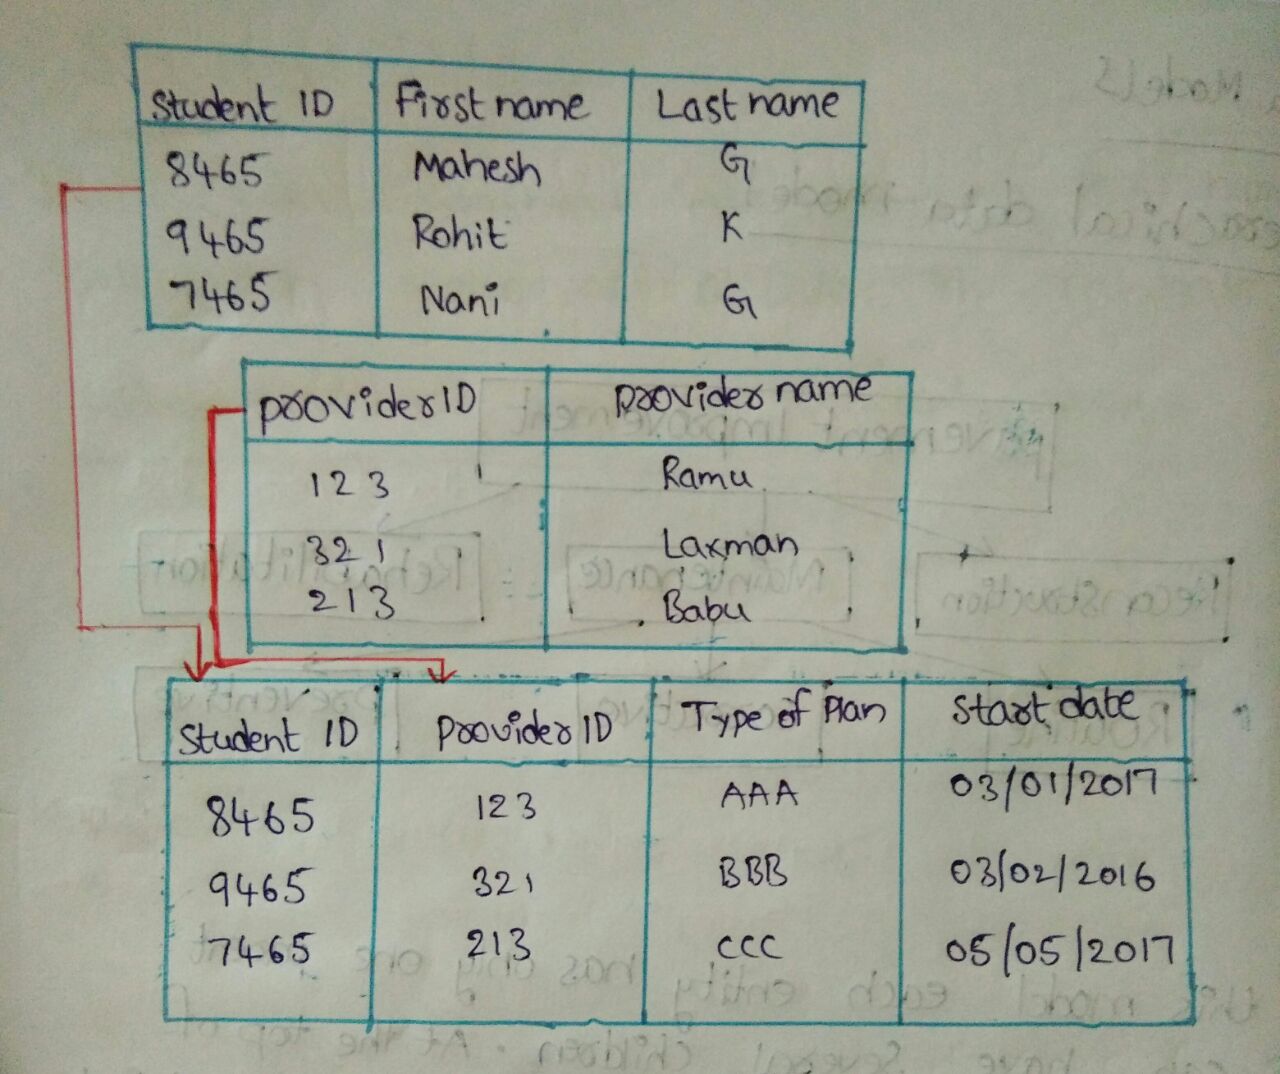 Student ID First name Last name
8465 Mahesh G
9465 Rohit K
7465 Nani G
provider ID provider name
123 Ramu
321 Laxman
213 Babu
Student ID Provider ID Type of Plan Start date
8465 123 AAA 03/01/2017
9465 321 BBB 03/02/2016
7465 213 CCC 05/05/2017